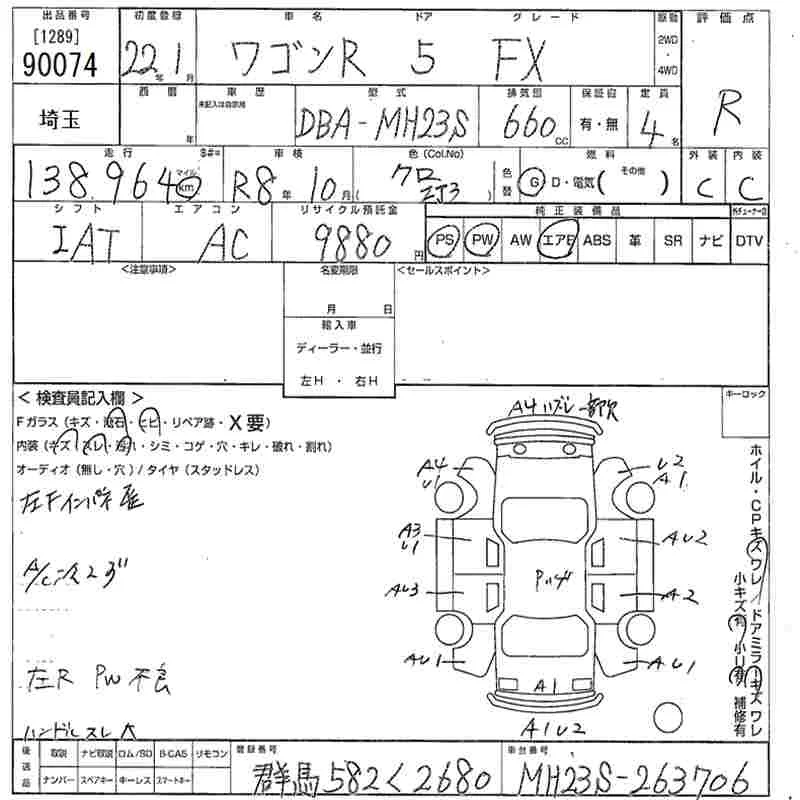 出品番号 初度登録 車名 ドア グレード 駆動 評価点
[1289]
90074 22年 1月 ワゴンR 5 FX 2WD・4WD R
埼玉 西暦 年 車歴 未記入は自家用 型式 DBA-MH23S 排気図 660cc 保証書 有・無 定員 4名
走行 138,964 マイル km $#= 車検 R8年 10月 色(Col.No) クロ ZJ3 色替 燃料 G・D・電気( その他 ) 外装 C 内装 C
シフト IAT エアコン AC リサイクル預託金 9880円 純正装備品 PS PW AW エアB ABS 革 SR ナビ DTV
<注意事項> 名変期限 <セールスポイント>
月 日
輸入車
ディーラー・並行
左H ・ 右H
キーロック
<検査員記入欄>
Fガラス(キズ・飛石・ヒビ・リペア跡・X要)
内装(キズ・スレ・汚れ・シミ・コゲ・穴・キレ・破れ・割れ)
オーディオ(無し・穴)/タイヤ(スタッドレス)
左Fインパネ
左R PW不良
ハンドルスレ大
A4ハズレ 一部欠
A4 U1
U2 A1
A3 U1
AU2
AU3
A2
AU1
AU1
A1
A1U2
ホイル・CPキズワレ/ドアミラーキズワレ
小キズ有 小凹有 補修有
後送品 取説 ナビ取説 ロム/SD B-CAS リモコン 登録番号 車台番号
ナンバー スペアキー キーレス スマートキー 群馬582く2680 MH23S-263706